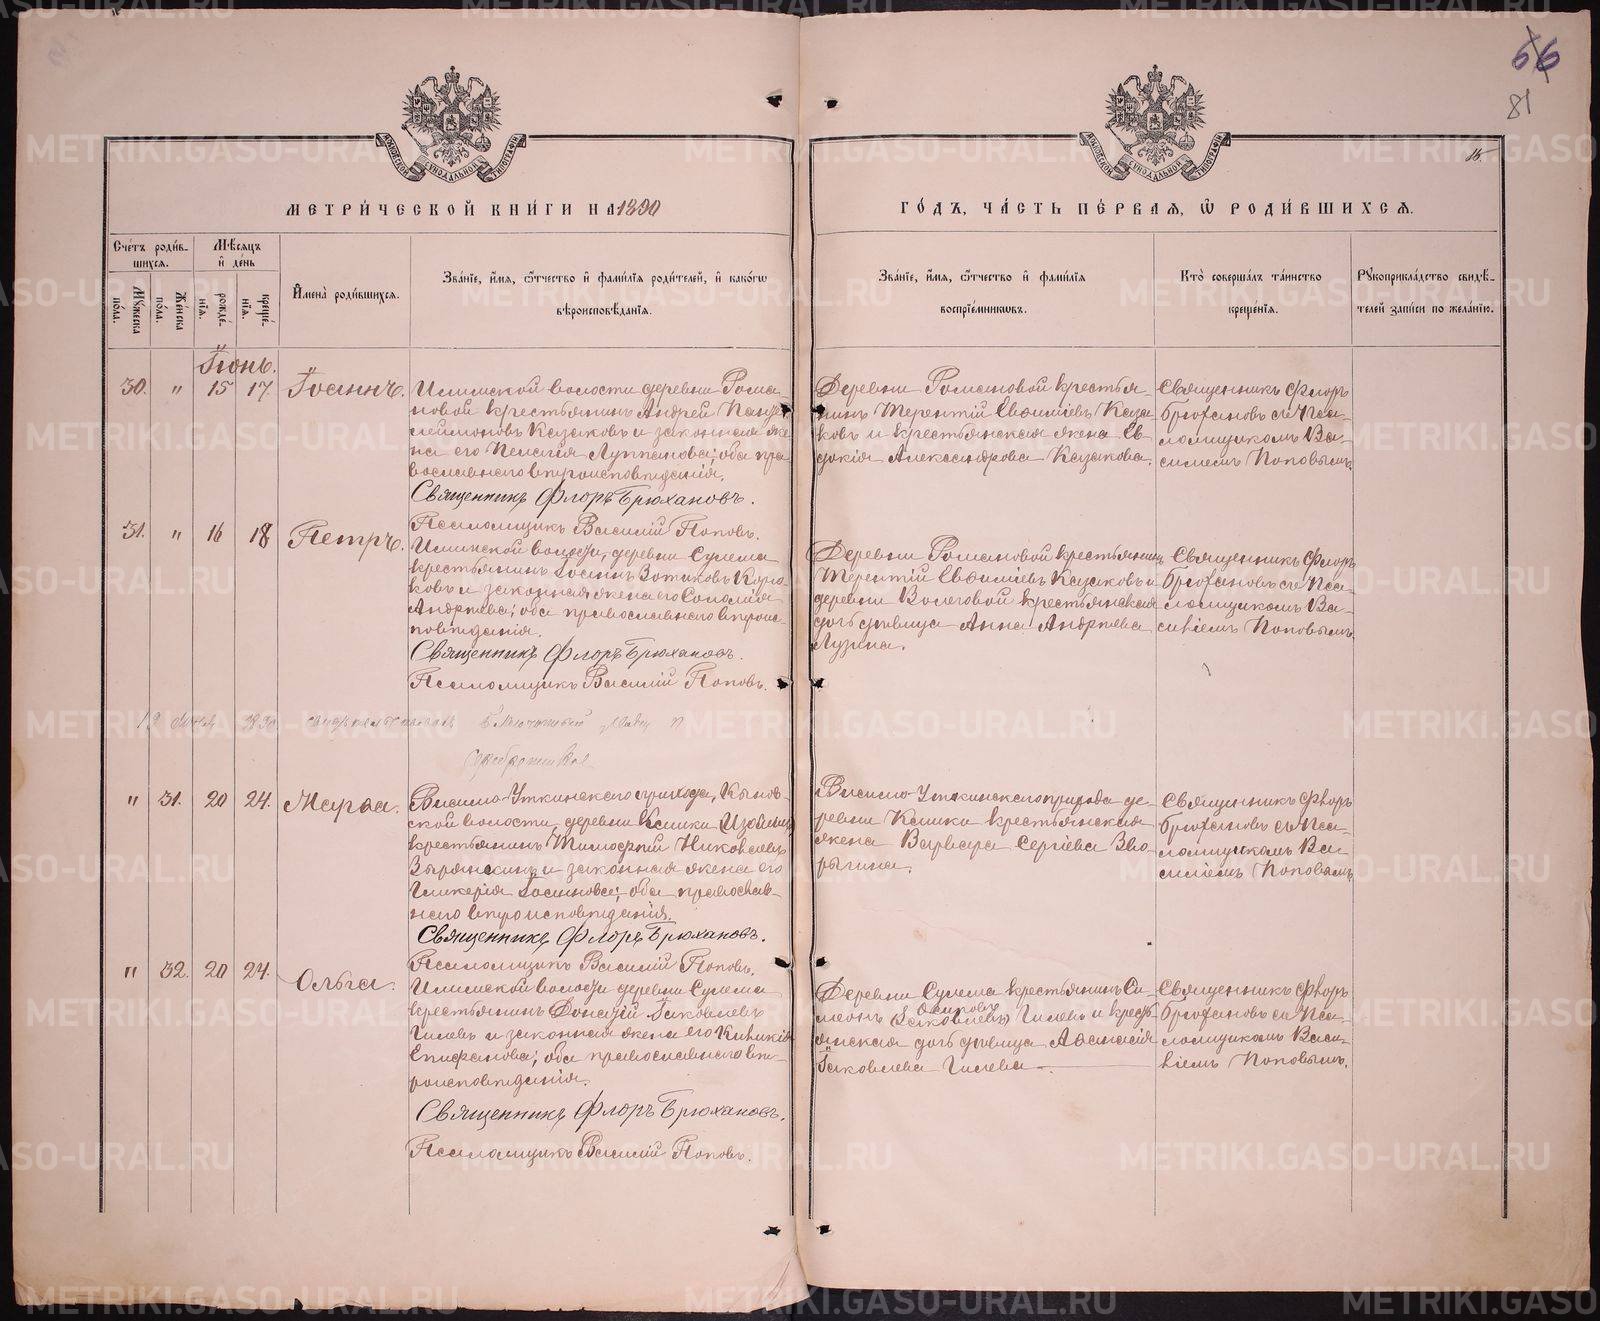 66
81
15.
МОСКОВСКОЙ СѴНОДАЛЬНОЙ ТИПОГРАФІИ
МОСКОВСКОЙ СѴНОДАЛЬНОЙ ТИПОГРАФІИ
МЕТРИ́ЧЕСКОЙ КНИ́ГИ НА 1890
ГО́ДЪ, ЧА́СТЬ ПЕ́РВАЯ, Ѡ҆ РОДИ́ВШИХСЯ.
Сче́тъ роди́в-
шихся.
Мѣ́сяцъ
и҆ де́нь
Му́жеска
по́ла.
Же́нска
по́ла.
рожде́-
нїя.
креще́-
нїя.
И҆мена̀ роди́вшихся.
Зва́нїе, и҆́мя, ѻ҆́тчество и҆ фами́лїя роди́телей, и҆ како́гѡ
вѣроисповѣ́данїя.
Зва́нїе, и҆́мя, ѻ҆́тчество и҆ фами́лїя
воспрїе́мникѡвъ.
Кто̀ соверша́лъ та́инство
креще́нїя.
Рꙋкоприкла́дство свидѣ́-
телей за́писи по жела́нїю.
Іюнь.
30. " 15 17. Іоаннъ.
Илимской волости деревни Рома-
новой крестьянинъ Андрей Панте-
леимоновъ Казаковъ и законная же-
на его Пелагія Луппанова; оба пра-
вославнаго вѣроисповѣданія.
Священникъ Флоръ Брюхановъ.
Псаломщикъ Василій Поповъ.
Деревни Романовой крестья-
нинъ Терентій Евѳиміевъ Каза-
ковъ и крестьянская жена Ев-
докія Александрова Казакова.
Священникъ Флоръ
Брюхановъ съ Пса-
ломщикомъ Ва-
силіемъ Поповымъ.
31. " 16 18 Петръ.
Илимской волости, деревни Сулема
крестьянинъ Іоаннъ Зотиковъ Коро-
ковъ и законная жена его Соломія
Андреева; оба православнаго вѣроис-
повѣданія.
Священникъ Флоръ Брюхановъ.
Псаломщикъ Василій Поповъ.
Деревни Романовой крестьянинъ
Терентій Евѳиміевъ Казаковъ и
деревни Волеговой крестьянская
дочь дѣвица Анна Андреева
Лузина.
Священникъ Флоръ
Брюхановъ съ Пса-
ломщикомъ Ва-
силіемъ Поповымъ.
" 31. 20 24. Марѳа.
Васильо-Уткинскаго прихода, Кынов-
ской волости, деревни Камки
крестьянинъ Тимоѳей Николаевъ
Зырянкинъ и законная жена его
Гликерія Іоаннова; оба православ-
наго вѣроисповѣданія.
Священникъ Флоръ Брюхановъ.
Псаломщикъ Василій Поповъ.
Васильо-Уткинскаго прихода де-
ревни Камки крестьянская
жена Варвара Сергіева Зво-
рыгина.
Священникъ Флоръ
Брюхановъ съ Пса-
ломщикомъ Ва-
силіемъ Поповымъ.
" 32. 20 24. Ольга.
Илимской волости деревни Сулема
крестьянинъ Донатій Іаковлевъ
Гилевъ и законная жена его Киликія
Епифанова; оба православнаго вѣ-
роисповѣданія.
Священникъ Флоръ Брюхановъ.
Псаломщикъ Василій Поповъ.
Деревни Сулема крестьянинъ Си-
меонъ (Іаковлевъ) Осиповъ Гилевъ и кресть-
янская дочь дѣвица Аѳанасія
Іаковлева Гилева.
Священникъ Флоръ
Брюхановъ съ Пса-
ломщикомъ Васи-
ліемъ Поповымъ.
METRIKI.GASO-URAL.RU